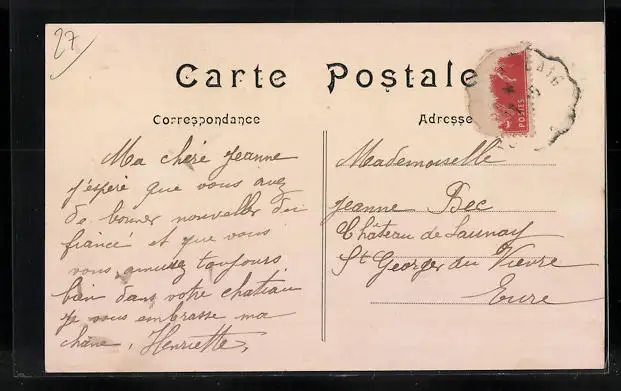 27
Carte Postale
Correspondance
Adresse
Ma chère Jeanne
j'espère que vous avez
de bonnes nouvelles du
fiancé et que vous
vous amusez toujours
bien dans votre chateau
Je vous embrasse ma
chère, Henriette,
Mademoiselle
Jeanne Bec
Château de Launay
St Georges du Vievre
Eure
POSTES